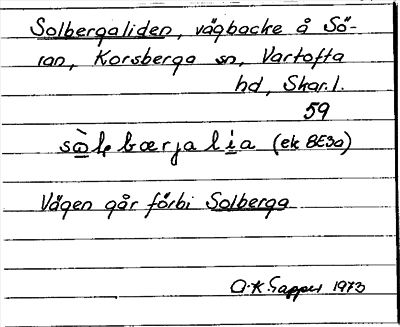 Solbergaliden, vägbacke å Sö-
ran, Korsberga sn, Vartofta
hd, Skar.l.
59
(ek BE3a)
Vägen går förbi Solberga
1973